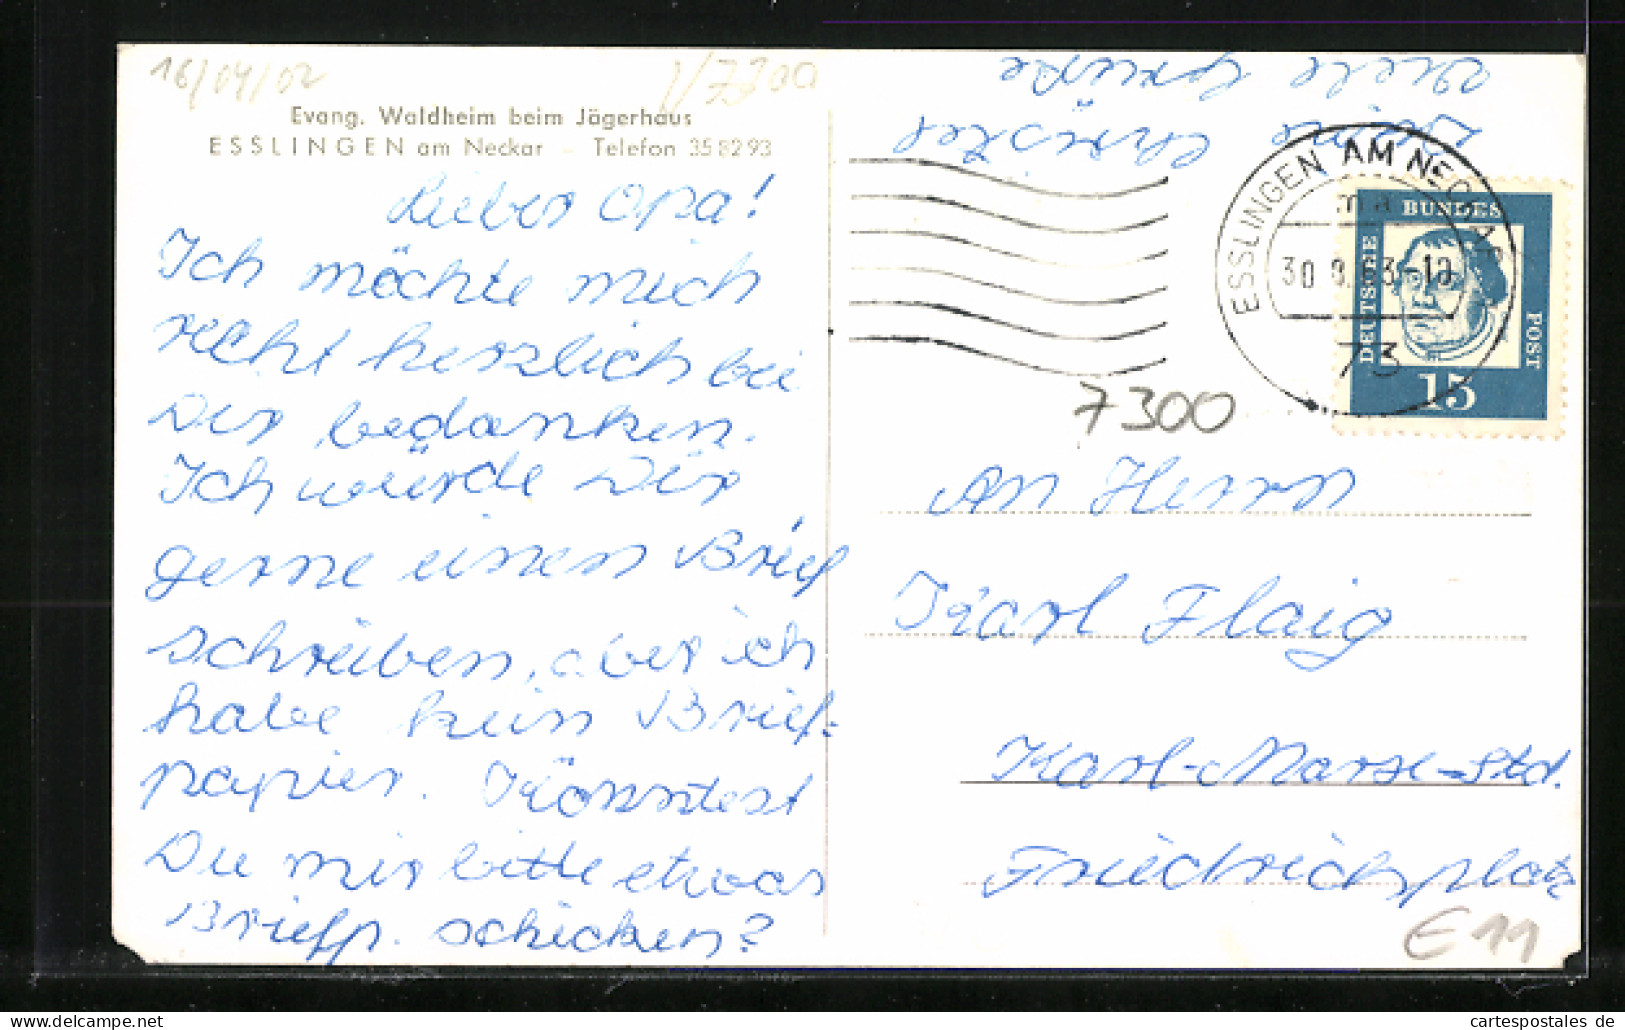 16/04/02
1/7300
Evang. Waldheim beim Jägerhaus
ESSLINGEN am Neckar – Telefon 35 82 93
Lieber Opa!
Ich möchte mich
recht herzlich bei
Dir bedanken.
Ich würde Dir
gerne einen Brief
schreiben, aber ich
habe kein Brief=
papier. Könntest
Du mir bitte etwas
Briefp. schicken?
Viele Grüße
Deine
ESSLINGEN AM NECKAR
ma
30.8.63-19
73
DEUTSCHE
BUNDES
POST
15
7300
An Herrn
Karl Flaig
Karl-Marx=Std.
Friedrichsplatz
€ 11
www.cartespostales.de
cartespostales de